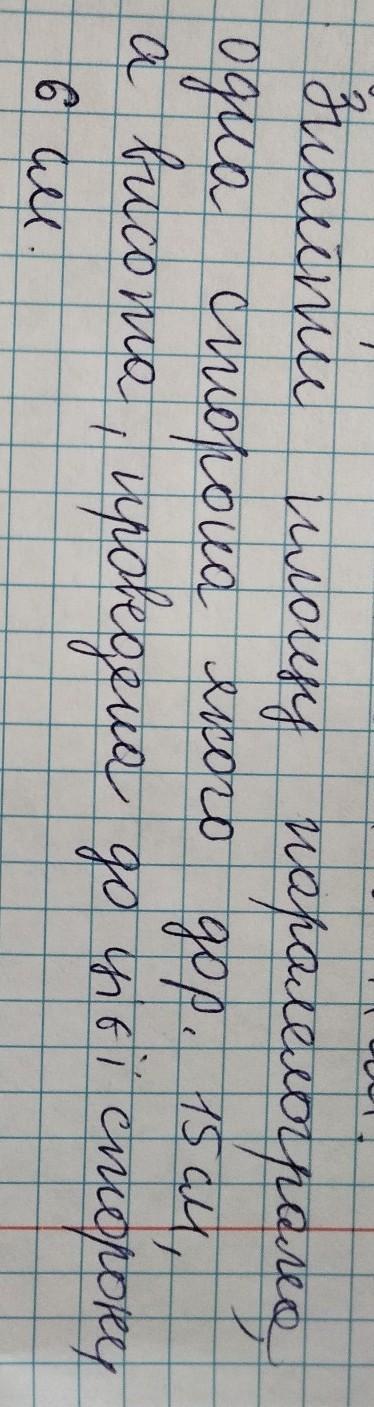 Знайти площу паралелограма,
одна сторона якого дор. 15 см,
а висота, проведена до цієї сторони
6 см.